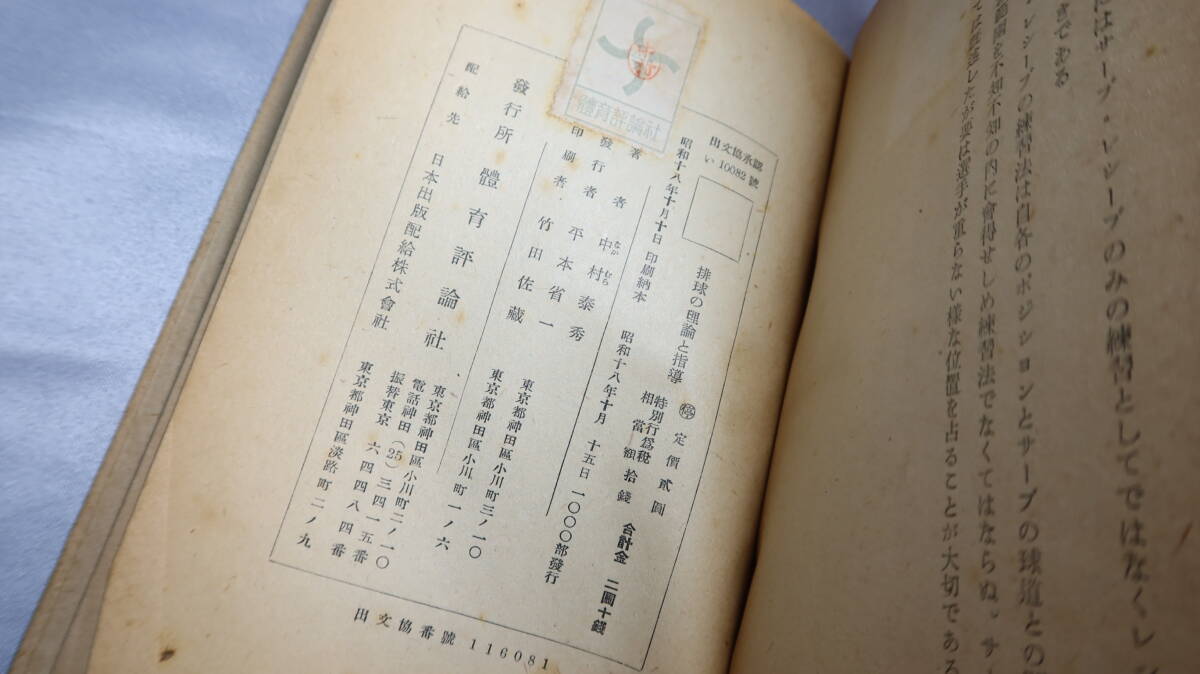 にはサーブ・レシーブのみの練習としてではなくレシ
きである
・レシーブの練習法は自各のポジションとサーブの球道との
範圍を不知不知の内に會得せしめ練習法でなくてはならぬ。サー
ては
したが要は選手が重らない樣な位置を占ることが大切である
出文協承認
い10082號
排球の理論と指導
停
定價貳圓
特別行爲稅
相當額拾錢
合計金 二圓十錢
昭和十八年十月十日印刷納本
昭和十八年十月 十五日
一〇〇〇部發行
著者 中村泰秀
なか むら
發行者 平本省一
東京都神田區小川町三ノ一〇
印刷者 竹田佐藏
東京都神田區小川町一ノ六
發行所 體育評論社
東京都神田區小川町二ノ一〇
電話神田(25)三四一五番
振替東京 六四四八四番
配給先 日本出版配給株式會社
東京都神田區淡路町二ノ九
出文協番號 116081
體育評論社